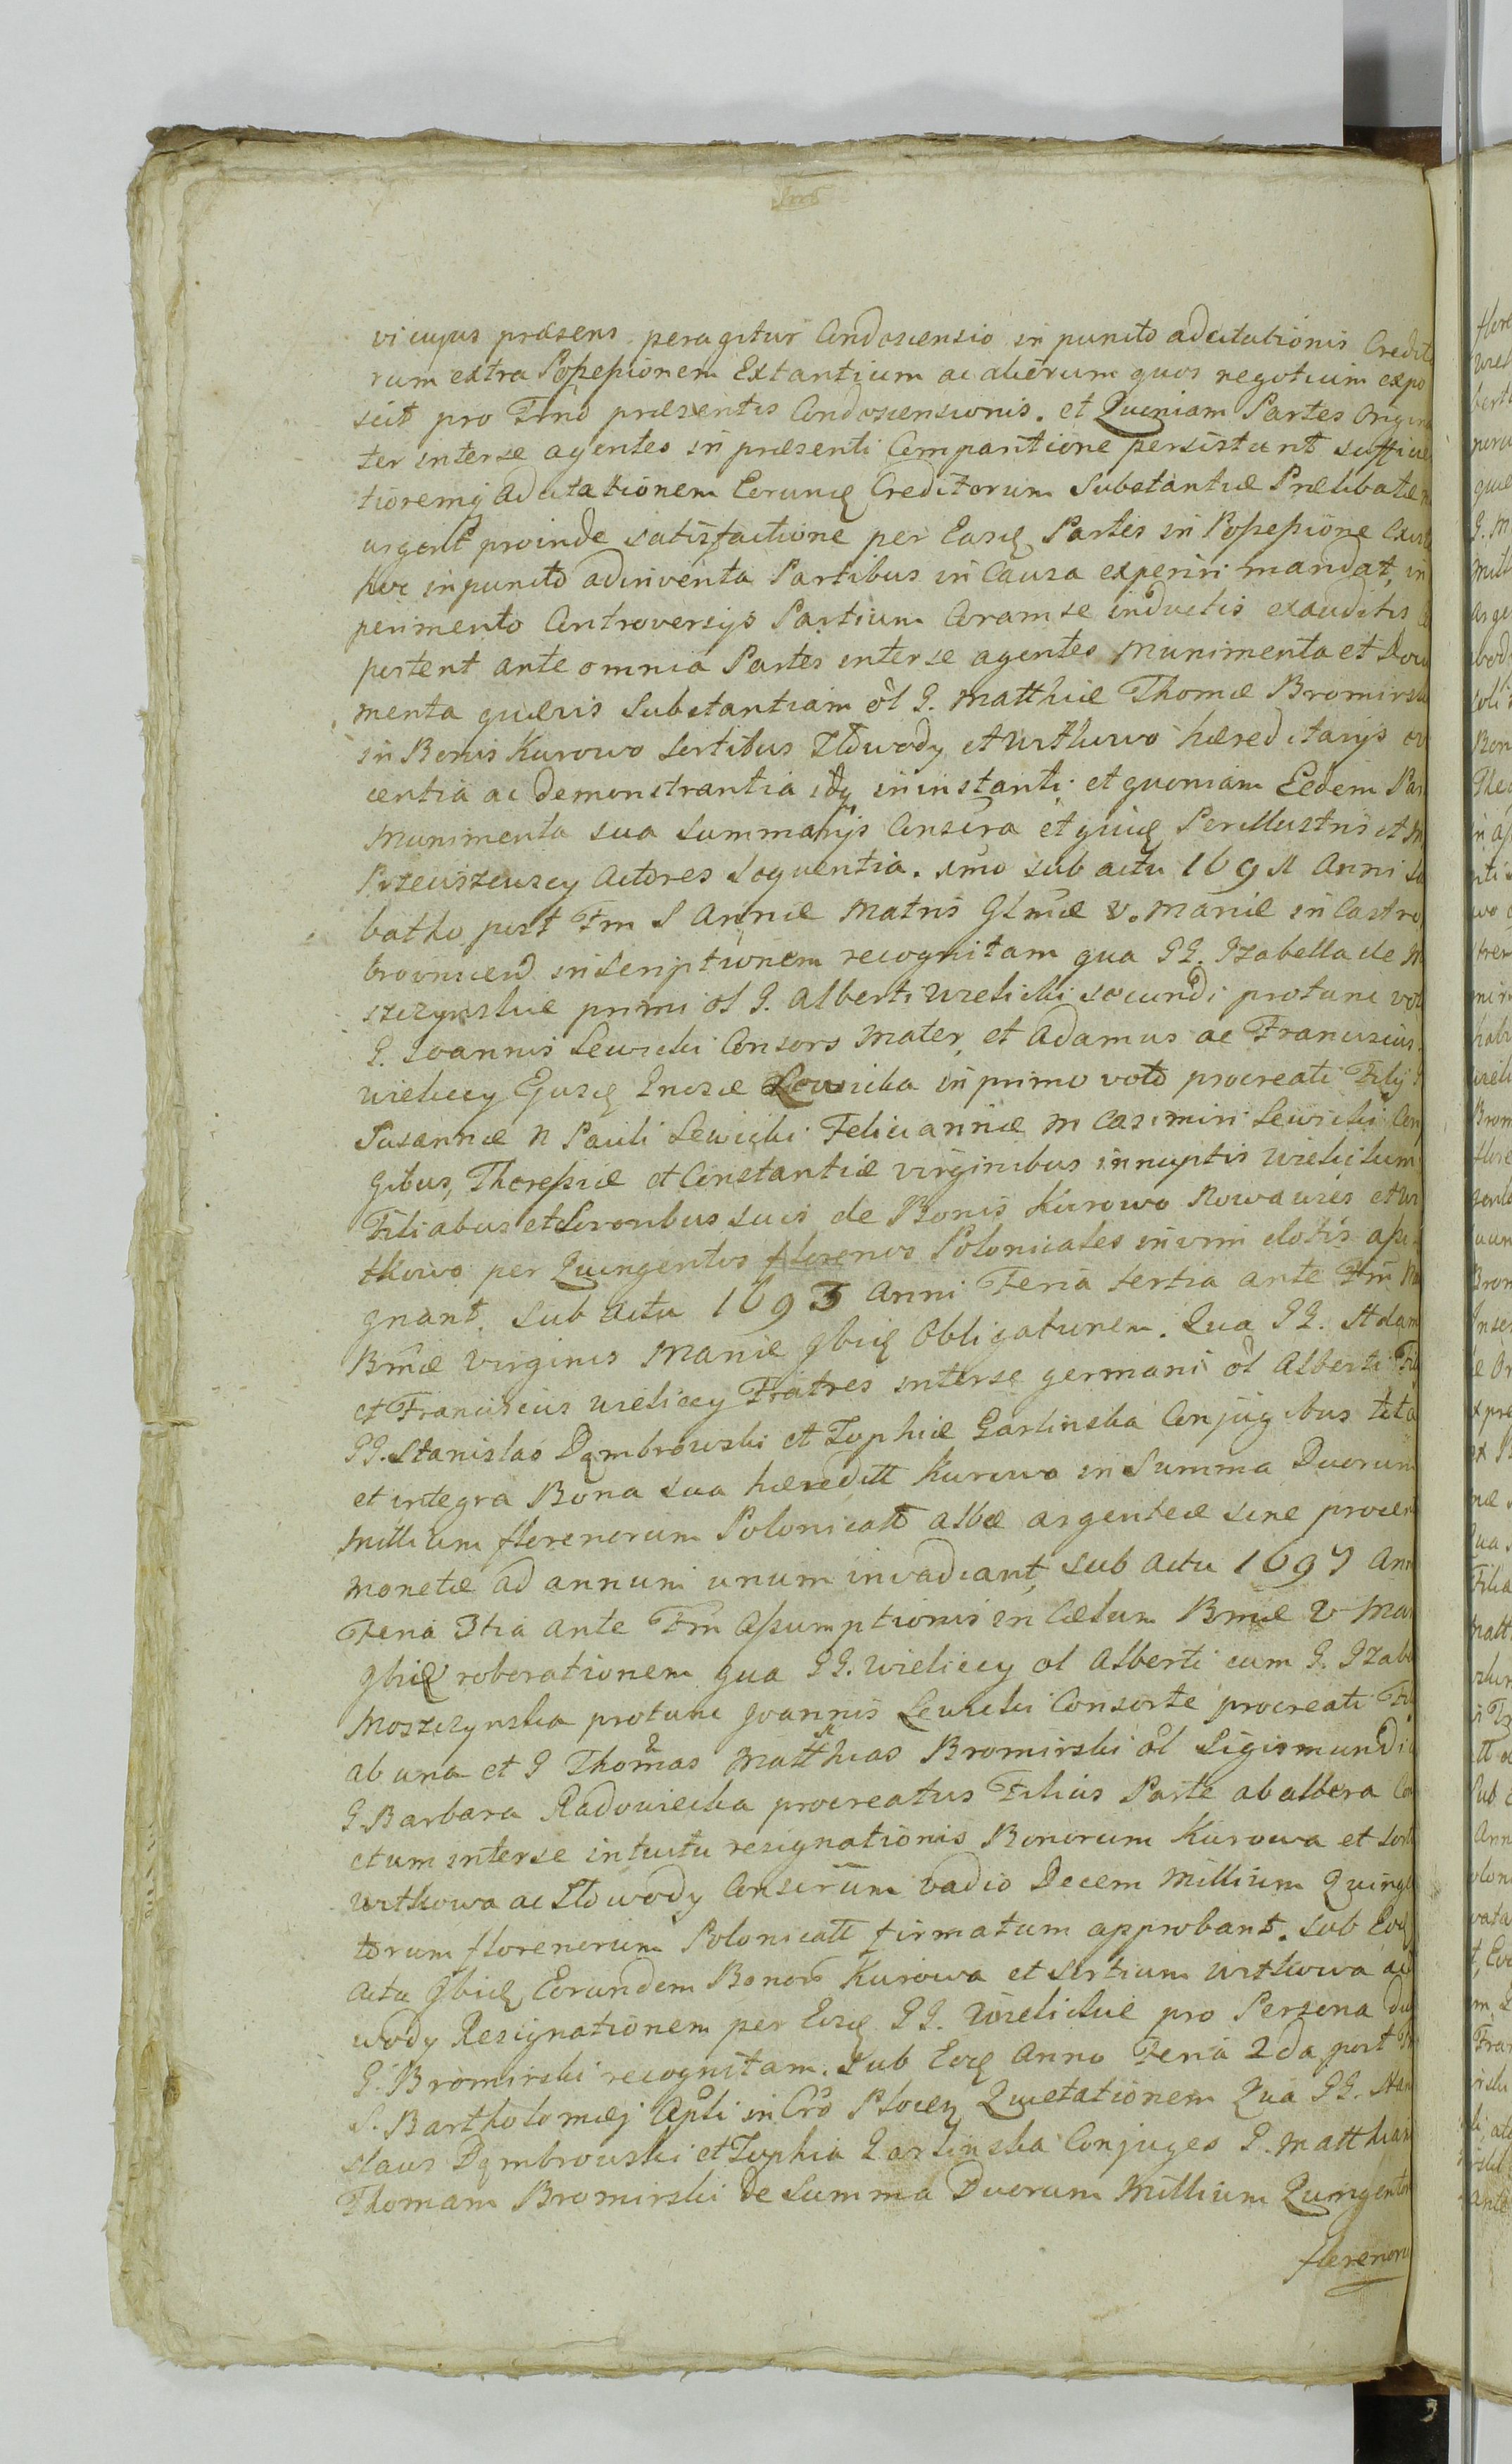 vi cujus præsens peragitur Condescensio in puncto adcitationis Credito
rum extra Possessionem Extantium ac aliorum quos negotium expo
scit pro Fino præsentis Condescensionis. et Quoniam Partes Origina
ter inter se agentes in præsenti Comparitione persistunt sufficien
tioremq adcitationem Eorumq Creditorum Substantiæ Prælibatæ
urgent proinde satisfactione per Easq Partes in Possessione Exist
hoc in puncto adinventa Partibus in Causa experiri mandat, in
perimento Controversys Partium Coram se inductis exauditis
portent ante omnia Partes inter se agentes Munimenta et Docu
menta quævis Substantiam ol G. Matthiæ Thomæ Bromirski
in Bonis Kurowo Sortibus Stowody et Witkowo hæreditarys
centia ac demonstrantia idq in instanti; et quoniam Eedem Par
Munimenta sua Summarys Consera et quidq Perillustris et M
Actores Sequentia. 1mo sub actu 1691 Anni Sa
batho post Fm S Annæ Matris Glmæ V. Mariæ in Castro
inscriptionem recognitam qua GG. Izabella de M
szczynskie primi ol G. Alberti Wielicki secundi protunc voti
G. Joannis Lewicki Consors Mater, et Adamus ac Franciscus
Wieliccy Ejusq Gnosæ Lewicka in primo voto procreati Filij
Susannæ N Pauli Lewicki Felicianniæ M Casimiri Lewicki Con
gibus, Theressiæ et Constantiæ virginibus innuptis Wielickim
Filiabus et Sororibus suis de Bonis Kurowo Nowawies et Wi
tkowo per Quingentos florenos Polonicales in vim dotis assi
gnant. Sub actu 1693 Anni Feria tertia ante Fm
Bmæ Virginis Mariæ Ibiq Obligationem. Qua GG. Adam
et Franciscus Wieliccy Fratres inter se germani ol Alberti Fil
GG. Stanislao Dąmbrowski et Zophiæ Garlinska Conjugibus tota
et integra Bona sua hæreditt Kurowo in Summa Duorum
Millium florenorum Polonicatt albæ argenteæ sine procen
monetæ ad annum unum invadiant, Sub actu 1697 Ann
Feria 3tia ante Fm Assumptionis in Cælum Bmæ V Mar
Ibiq roborationem qua GG. Wieliccy ol Alberti cum G. Izabe
Moszczynska protunc Joannis Lewicki Consorte procreati Fil
ab una et G Thomas Matthias Bromirski ol Sigismundi
G. Barbara Radowiecka procreatus Filius Parte ab altera Con
ctum inter se intuitu resignationis Bonorum Kurowa et Sorti
Witkowa ac Stowody Conserum vadio Decem Millium Quinge
torum florenorum Polonicatt firmatum approbant. Sub Eodq
Actu Ibiq Eorundem Bonorum Kurowa et Sortium Witkowa ac
wody Resignationem per Eosq GG. Wielickie pro Persona
G. Bromirski recognitam. Sub Eodq Anno Feria 2da post Fm
S. Bartholomæj Apli in Cro Plocen Quietationem Qua GG. Stani
slaus Dąmbrowski et Zophia Garlinska Conjuges G. Matthiam
Thomam Bromirski de Summa Duorum Millium Quingentor
florenoru